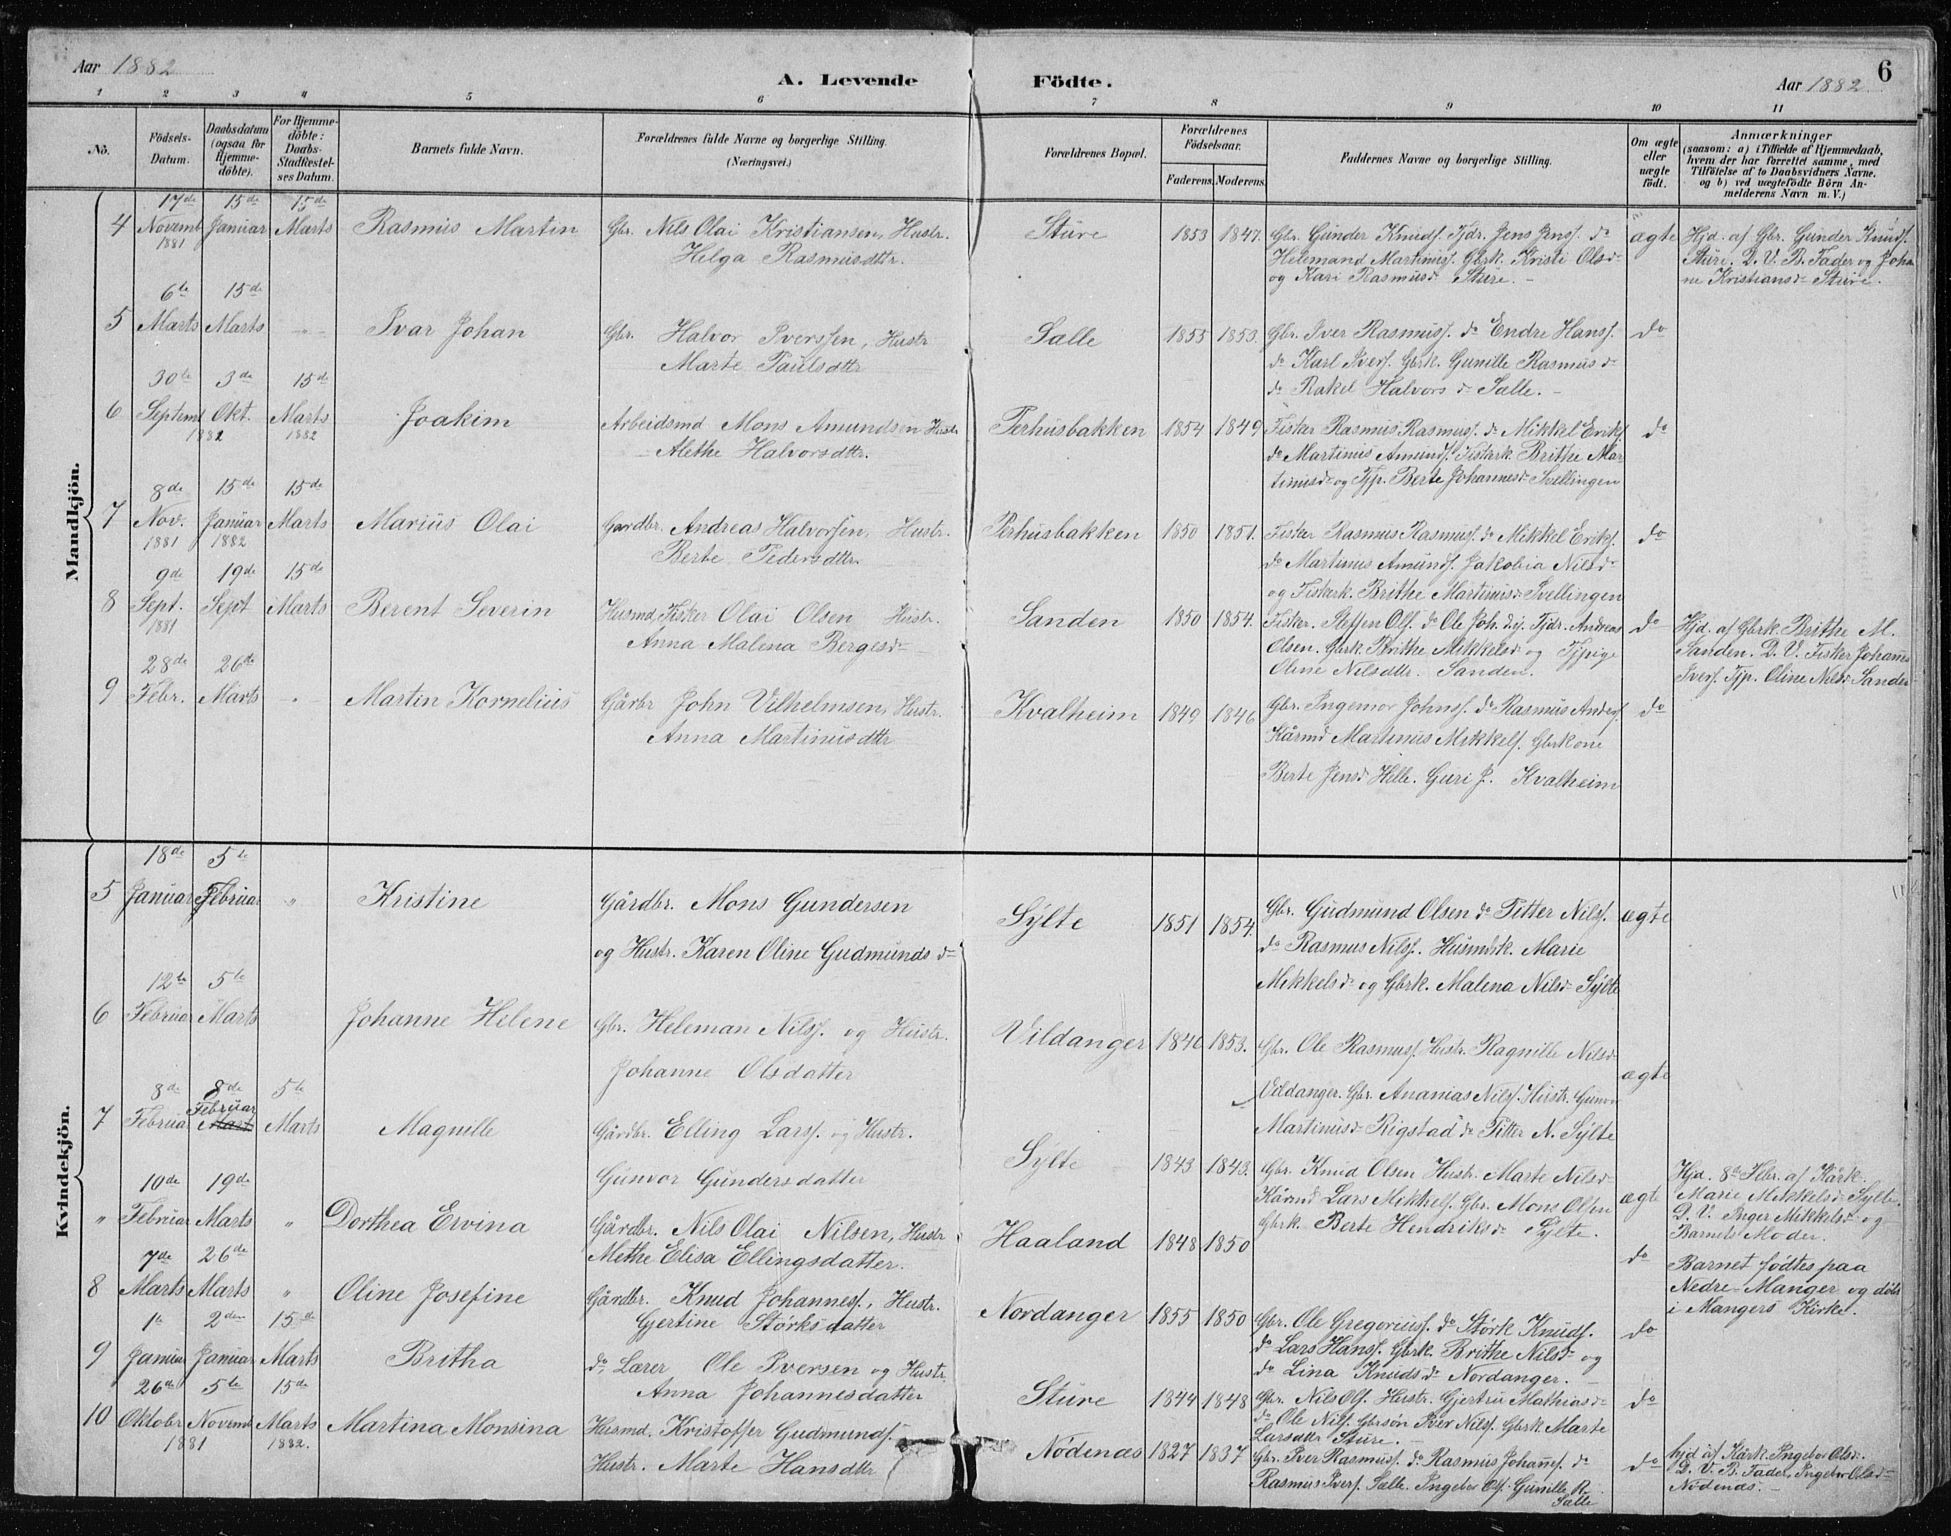 Aar 1882
A. Levende Födte.
Aar 1882.
6
1 2 3 4 5 6 7 8 9 10 11
No.
Födsels-Datum.
Daabsdatum (ogsaa for Hjemme-döbte).
For Hjemme-döbte: Daabs-Stadfæstel-ses Datum.
Barnets fulde Navn.
Forældrenes fulde Navne og borgerlige Stilling.
(Næringsvei.)
Forældrenes Bopæl.
Forældrenes Födselsaar.
Faderens. Moderens.
Faddernes Navne og borgerlige Stilling.
Om ægte eller uægte födt.
Anmærkninger
(saasom: a) i Tilfælde af Hjemmedaab,
hvem der har forrettet samme, med
Tilföielse af to Daabsvidners Navne.
og b) ved uægtefödte Börn An-
melderens Navn m. V.)
Mandkjön.
17de 15de 15de
4 Novemb Januar Marts Rasmus Martin Gbr. Nils Olai Kristiansen, Hustr. Sture 1853 1847. Gbr. Gunder Knuds. Fdr. Jens Jens. do ægte Hjd. af Gbr. Gunder Knuds.
1881 Helga Rasmusdttr. Helemand Martinus. Gbrk. Kristi Olsd Sture. D. V. B. Fader og Joha
og Kari Rasmusd Sture. ne Kristiansd Sture.
6te 15de
5 Marts Marts Ivar Johan Gbr. Halvor Iverssen, Hustr Salle 1853 1853. Gbr. Iver Rasmuss. do Endre Hanss. do
Marte Paulsdttr do Karl Ivers. Gbrk. Gunille Rasmusd
do Rakel Halvorsd Salle.
30te 3de 15de
6 Septemb Okt. Marts Joakim Arbeidsmd Mons Amundsen Hustr Perhusbakken 1854 1849 Fisker Rasmus Rasmuss. do Mikkel Eriks. do
1882 1882 Alethe Halvorsdttr. do Martinus Amunds. Fiskerk Brithe Mar-
tinusd og Tjp. Berte Johannesd Svellingen
8de 15de 15de
7 Nov. Januar Marts Marius Olai Gardbr. Andreas Halvorsen, Hustr. Perhusbakken 1850 1851. Fisker Rasmus Rasmuss. do Mikkel Eriks. do
1881 1882 Berte Pedersdttr. do Martinus Amunds. Jakobia Nilsd
og Fiskerk. Brithe Martinusd Svellingen
9de 19de 15de
8 Sept. Sept Marts Berent Severin Husmd, Fisker Olai Olsen Hustr. Sanden 1850 1854. Fisker. Steffen Ols. do Ole Joh. Fdr. Andreas do Hjd. af Gbrk. Brithe M.
1881 Anna Malena Bergesd Olsen. Gbrk Brithe Mikkelsd og Tjpige Sanden. D. V. Fisker Johannes
Oline Nilsdttr. Sanden. Ivers. Tjp. Oline Nilsd Sanden
28de 26de
9 Febr. Marts Martin Kornelius Gårbr John Vilhelmsen, Hustr. Kvalheim 1849 1846 Gbr. Ingemor Johns. do Rasmus Anders. do
Anna Martinusdttr Kårmd Martinus Mikkels. Gbrkone
Berte Jensd Helle. Guri J. Kvalheim
Kvindekjön.
18de 5te
5 Januar Februar " Kristine Gårdbr. Mons Gundersen Sylte 1851 1854. Gbr. Gudmund Olsen do Titter Nils. ægte
og Hustr. Karen Oline Gudmundsd do Rasmus Nils. Husmdk. Marie
Mikkelsd og Gbrk. Malena Nilsd Sylte
12te 5te
6 Februar Marts Johanne Helene Gbr. Heleman Nils. og Hustr. Vildanger 1846 1853. Gbr. Ole Rasmuss. Hustr. Ragnille Nilsd ægte
Johanne Olsdatter Vildanger. Gbr. Ananias Nils. Hustr. Gunvor
Martinusd Rigstad do Titter N. Sylte
8de 8de 5te
7 Februar Februar Marts Marts Magnille Gårdbr. Elling Larss. og Hustr. Sylte 1843 1843. Gbr. Knud Olsen Hustr. Marte Nilsd ægte Hjd. 8de Febr. af Kårk.
Gunvor Gundersdatter Kårmd Lars Mikkels. Gbr. Mons Olsen Marie Mikkelsd Sylte.
Gbrk. Berte Hendriksd Sylte. D. V. Inger Mikkelsd og
Barnets Moder.
10de 19de
" Februar Marts " Dorthea Ervina Gårdbr. Nils Olai Nilsen, Hustr Haaland 1848 1850 do Barnet fødtes paa
Methe Elisa Ellingsdatter. Nedre-Manger og døbt
i Mangers Kirke.
7de 26de
8 Marts Marts " Oline Josefine Gårdbr. Knud Johanness., Hustr. Nordanger 1855 1850 Gbr. Ole Gregorius. do Størk Knuds. do
Gjertine Størksdatter do Lars Hans. Gbrk. Brithe Nilsd og
do Lina Knudsd Nordanger.
1te 2den 15de
9 Januar Januar Marts Britha do, Lærer Ole Iversen og Hustr. Sture 1844 1848 Gbr. Nils Ols. Hustr. Gjertru Mathiasd do
Anna Johannesdatter do Ole Nils. Gbrsøn Iver Nils. Gbrk Marte
Larsdttr Sture.
26de 5te 15de
10 Oktober Novemb Marts Martina Monsina Husmd. Kristoffer Gudmunds. Nödenæs 1827 1837 Gbr. Iver Rasmuss. do Rasmus Johanes. do do hjd af Kårk. Ingebor Olsd.
1881 1882. Hustr. Marte Hansdttr Rasmus Ivers. Salle. Ingebor Ols. Gunille R. D. V. B. Fader, Ingebor Olsd
Salle Nödenæs.